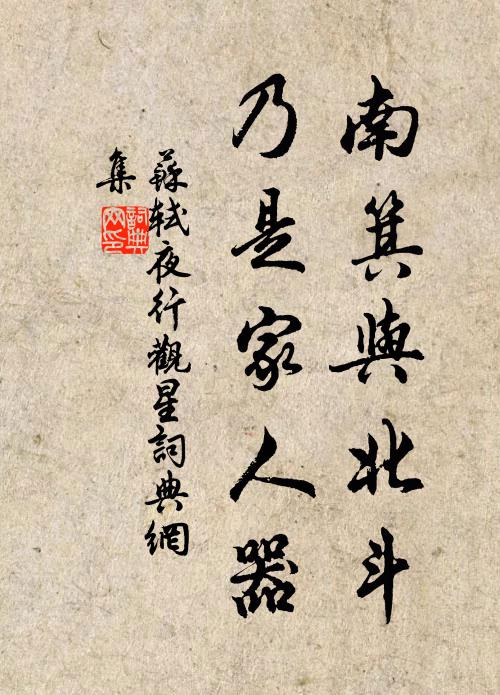 南箕與北斗
乃是家人器
蘇軾夜行觀星詞典網
集
詞典
网印